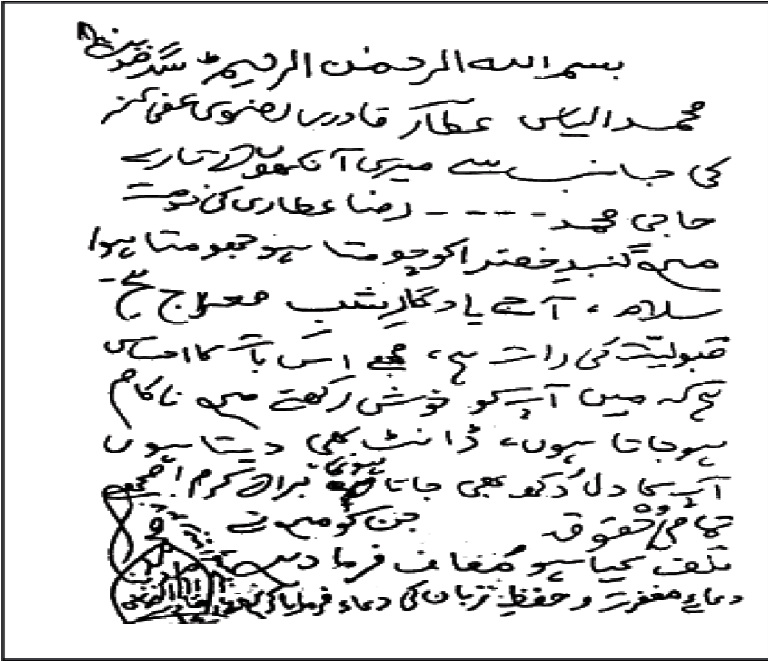 بسم اللہ الرحمٰن الرحیم ط سگِ مدینہ
محمد الیاس عطار قادری رضوی عفی عنہ
کی جانب سے میری آنکھوں کے تارے
حاجی محمد ---- رضا عطاری کی خدمت
میں گنبدِ خضرا کو چومتا ہوا جھومتا ہوا
سلام ، آج یادگارِ شبِ معراج ہے۔
قبولیت کی رات ہے، مجھے اس بات کا احساس
ہے کہ میں آپ کو خوش رکھنے میں ناکام
ہو جاتا ہوں، ڈانٹ بھی دیتا ہوں
آپ کا دل دُکھ بھی جاتا ہوگا برائے کرم! مجھے
تمام حقوق جن کو میں نے
تلف کیا ہو مُعاف فرما دیں
دعائے مغفرت و حفظِ زبان کی دعاء فرمایا کریں